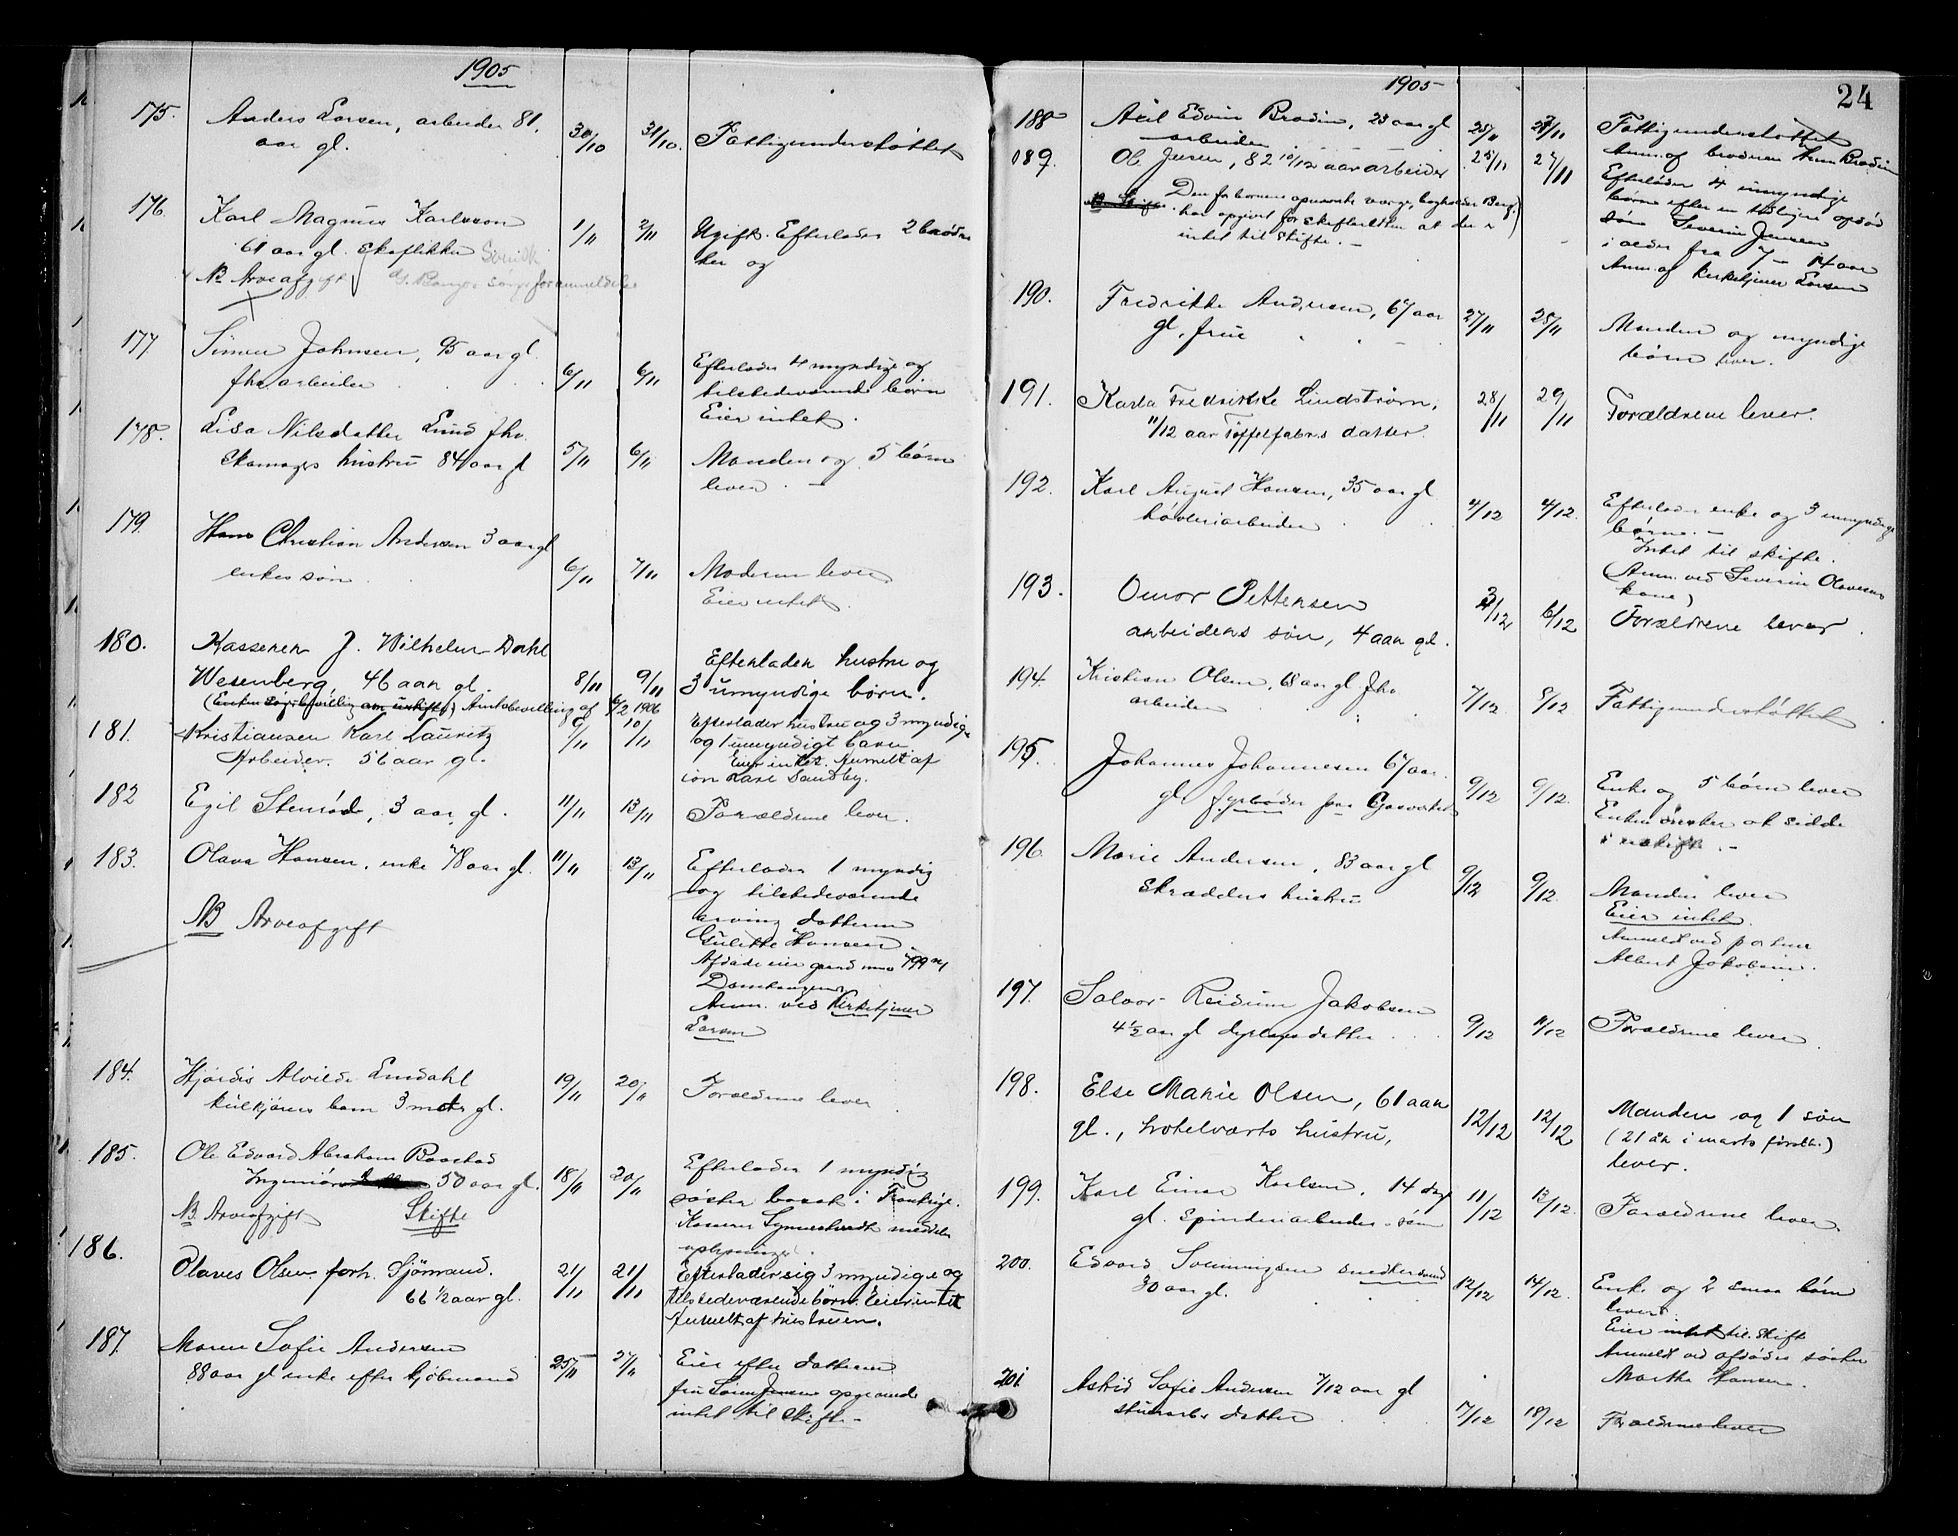 1905
175. Anders Larsen, arbeider 81. 30/10 31/10. Fattigunderstøttet
aar gl.
176. Karl Magnus Karlsson 1/11 2/11 Ugift. Efterlader 2 brødre
61 aar gl. Skoflikker her og
NB Arveafgift
177 Simen Johnsen, 95 aar gl. 6/11 6/11 Efterlader 4 myndige og
fhv arbeider tilstedeværende børn
Eier intet.
178. Lisa Nilsdatter Lund fhv. 5/11 6/11 Manden og 5 børn
Skomagers hustru 84 aar gl lever. –
179. Hans Christian Andersen 3 aar gl 6/11 7/11 Moderen lever
enkes søn Eier intet.
180. Kasserer J. Wilhelm Dahl Efterlader hustru og
Wesenberg, 46 aar gl. 8/11 9/11 3 umyndige børn.
Amtsbevilling af 6/2 1906
181. Kristiansen Karl Lauritz 9/11 10/11 Efterlader hustru og 3 myndige
Arbeider. 56 aar gl. og 1 umyndigt barn
Eier intet. Anmelt af
søn Karl Sandby.
182 Egil Stenrød, 3 aar gl. 11/11 13/11 Forældrene lever.
183. Olava Hansen, enke 78 aar gl. 11/11 13/11 Efterlader 1 myndig
og tilstedeværende
NB Arveafgift arving datteren
Gulitte Hansen
Afdøde eier gaard mno 799
Damhaugen
Anm. ved Kirketjener
Larsen
184. Hjørdis Alvilde Lindahl 19/11 20/11 Forældrene lever
kulkjørers barn 3 mdr gl.
185. Ole Edvard Abraham Baastad 18/11 20/11 Efterlader 1 myndig
Ingeniør 50 aar gl. søster bosat i Frankrige.
NB Arveafgift Skifte Kasserer meddeler
oplysninger.
186. Olaves Olsen forh. Sjømand. 21/11 21/11 Efterlader sig 3 myndige og
66 1/2 aar gl. tilstedeværende børn. Eier intet
Anmelt af hustruen.
187. Maren Sofie Andersen 25/11 27/11 Eier efter datteren
88 aar gl enke efter kjøbmand fru Jensens opgivende
intet til Skifte –
1905 24
188 Axil Edvin Brodin, 23 aar gl 25/11 27/11 Fattigunderstøttet
arbeider Anm. af broderen Brodin
189. Ol. Jensen, 82 10/12 aar arbeider 25/11 27/11 Efterlader 4 umyndige
Den for børnene opnævnte værge, bogholder Berg, børn efter en tidligere afdød
har opgivet for Skifteretten at der er søn Severin Jensen
intet til Skifte. – i alder fra 7 – 14 aar
Anm. af kirketjener Larsen
190. Fredrikke Andersen, 67 aar 27/11 28/11 Manden og myndige
gl, frue børn lever.
191. Karla Fredrikke Lindstrøm, 28/11 29/11 Forældrene lever.
11/12 aar Tøffelfabrs datter.
192. Karl August Hansen, 35 aar gl 4/12 4/12. Efterlader enke og 3 umyndige
høvleriarbeider børn. –
Intet til skifte.
(Anm. ved Severin Olavesens
kone)
193. Omar Pettersen 3/12 6/12 Forældrene lever.
arbeiders søn, 4 aar gl.
194. Kristian Olsen, 68 aar gl. fhv 7/12 8/12 Fattigunderstøttet
arbeider
195. Johannes Johannesen 67 aar. 9/12 9/12. Enke og 5 børn lever
gl. fyrbøder paa Gasverket Enken ønsker at sidde
i uskifte. –
196. Marie Andersen, 83 aar gl 9/12 9/12. Manden lever
Skrædders hustru Eier intet.
Anmeldt ved portner
Albert Jakobsen.
197. Salvor Reidun Jakobsen 9/12 11/12 Forældrene lever.
4 1/2 aar gl datter
198. Else Marie Olsen, 61 aar 12/12 12/12 Manden og 1 søn
gl., hotelværts hustru, (21 år i marts førstk.)
lever.
199. Karl Einar Karlsen, 14 dage 11/12 13/12. Forældrene lever.
gl. Spinderiarbeiders søn
200. Edvard Svenningsen snedkersvend 12/12 14/12. Enke og 2 smaa børn
30 aar gl. lever.
Eier intet til Skifte
Anmeldt ved afdødes søster
Marthe Hansen.
201 Astrid Sofie Andersen 7/12 aar gl 17/12 18/12 Forældrene lever
stuearbs datter